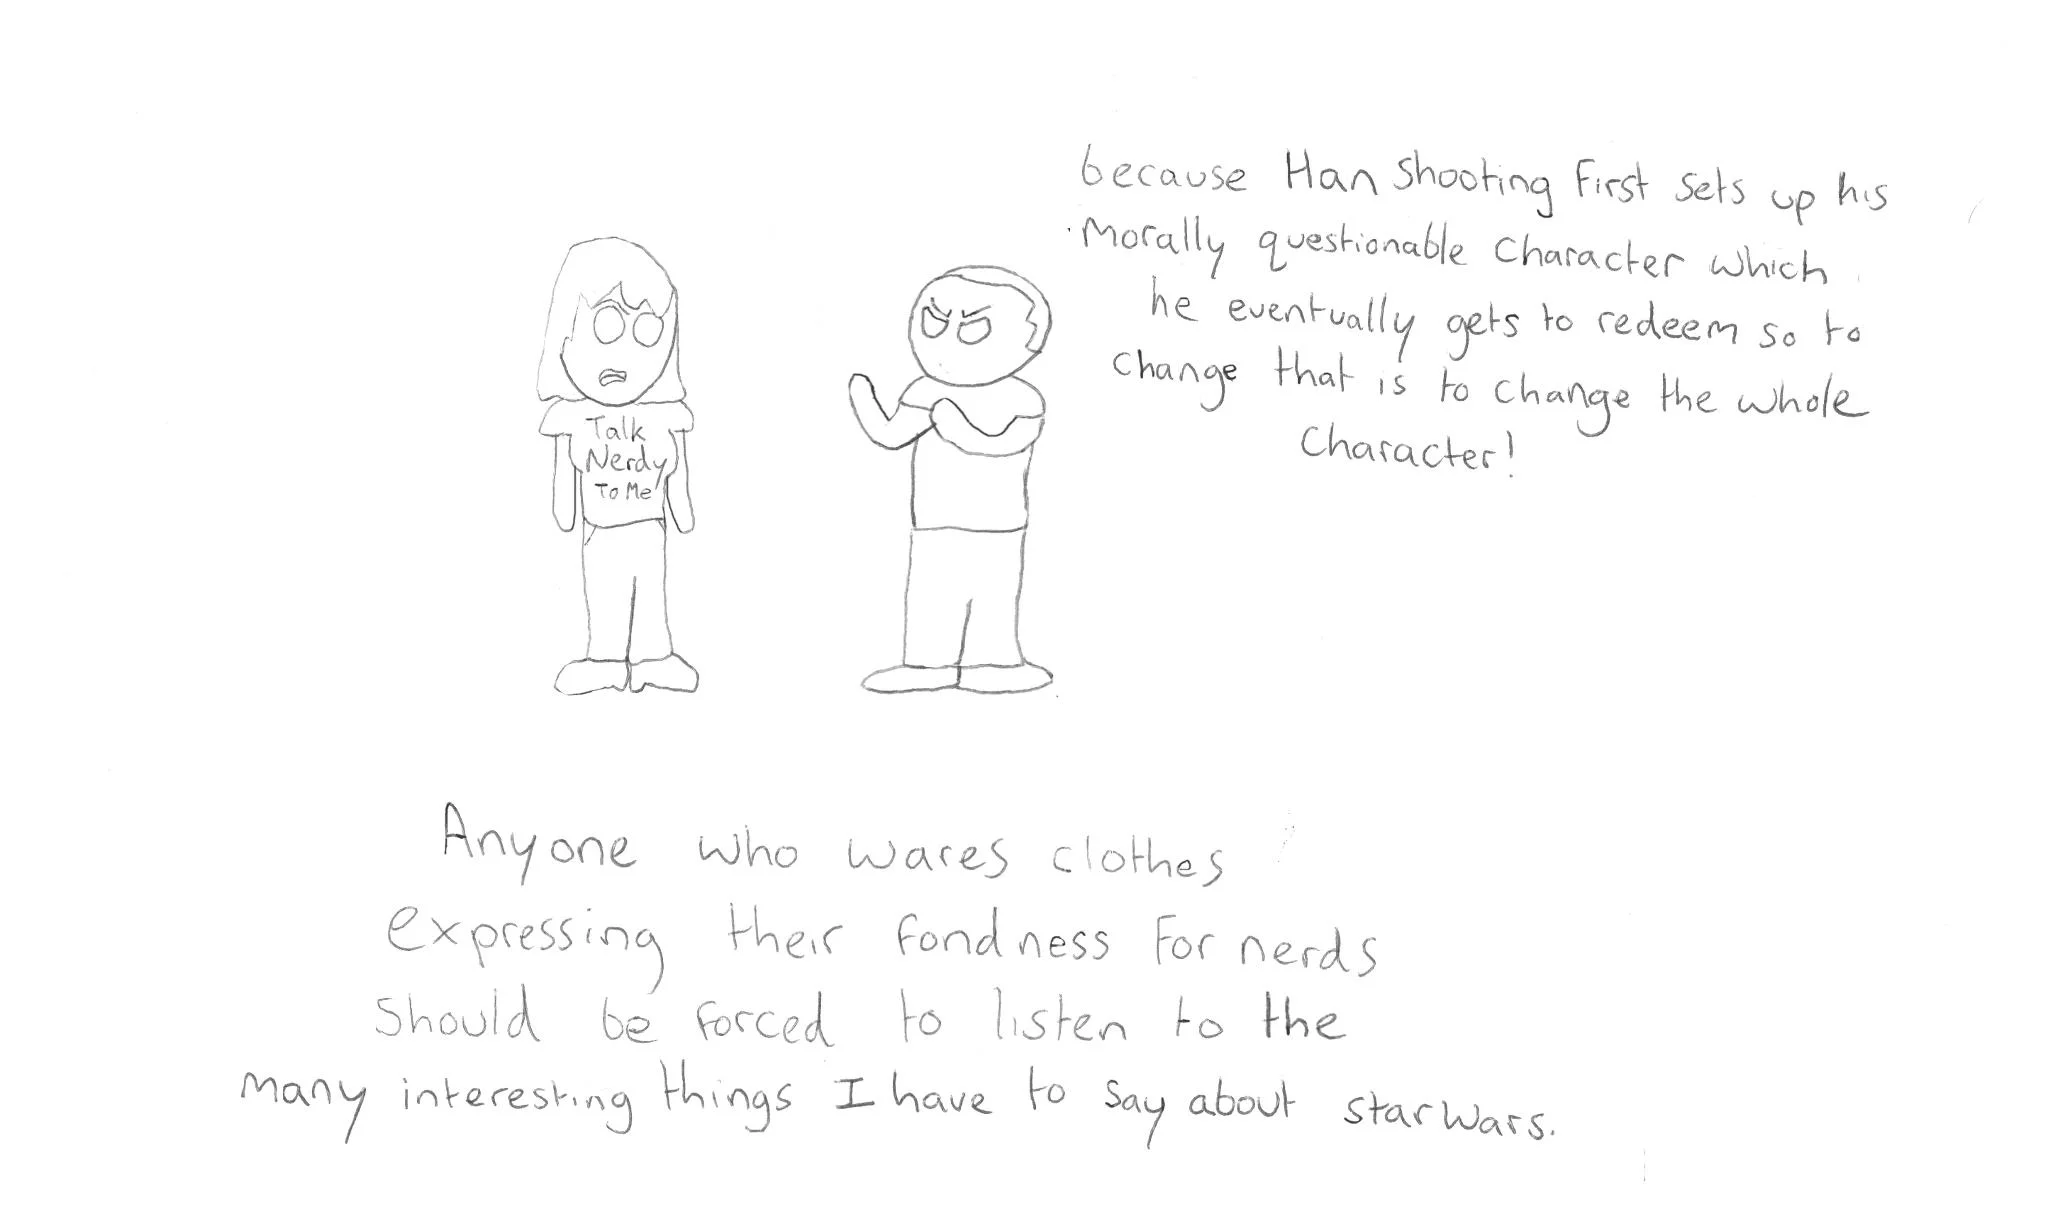 because Han shooting first sets up his
morally questionable character which
he eventually gets to redeem so to
change that is to change the whole
character!
Talk
Nerdy
To Me
Anyone who wares clothes
expressing their fondness for nerds
should be forced to listen to the
many interesting things I have to say about starwars.